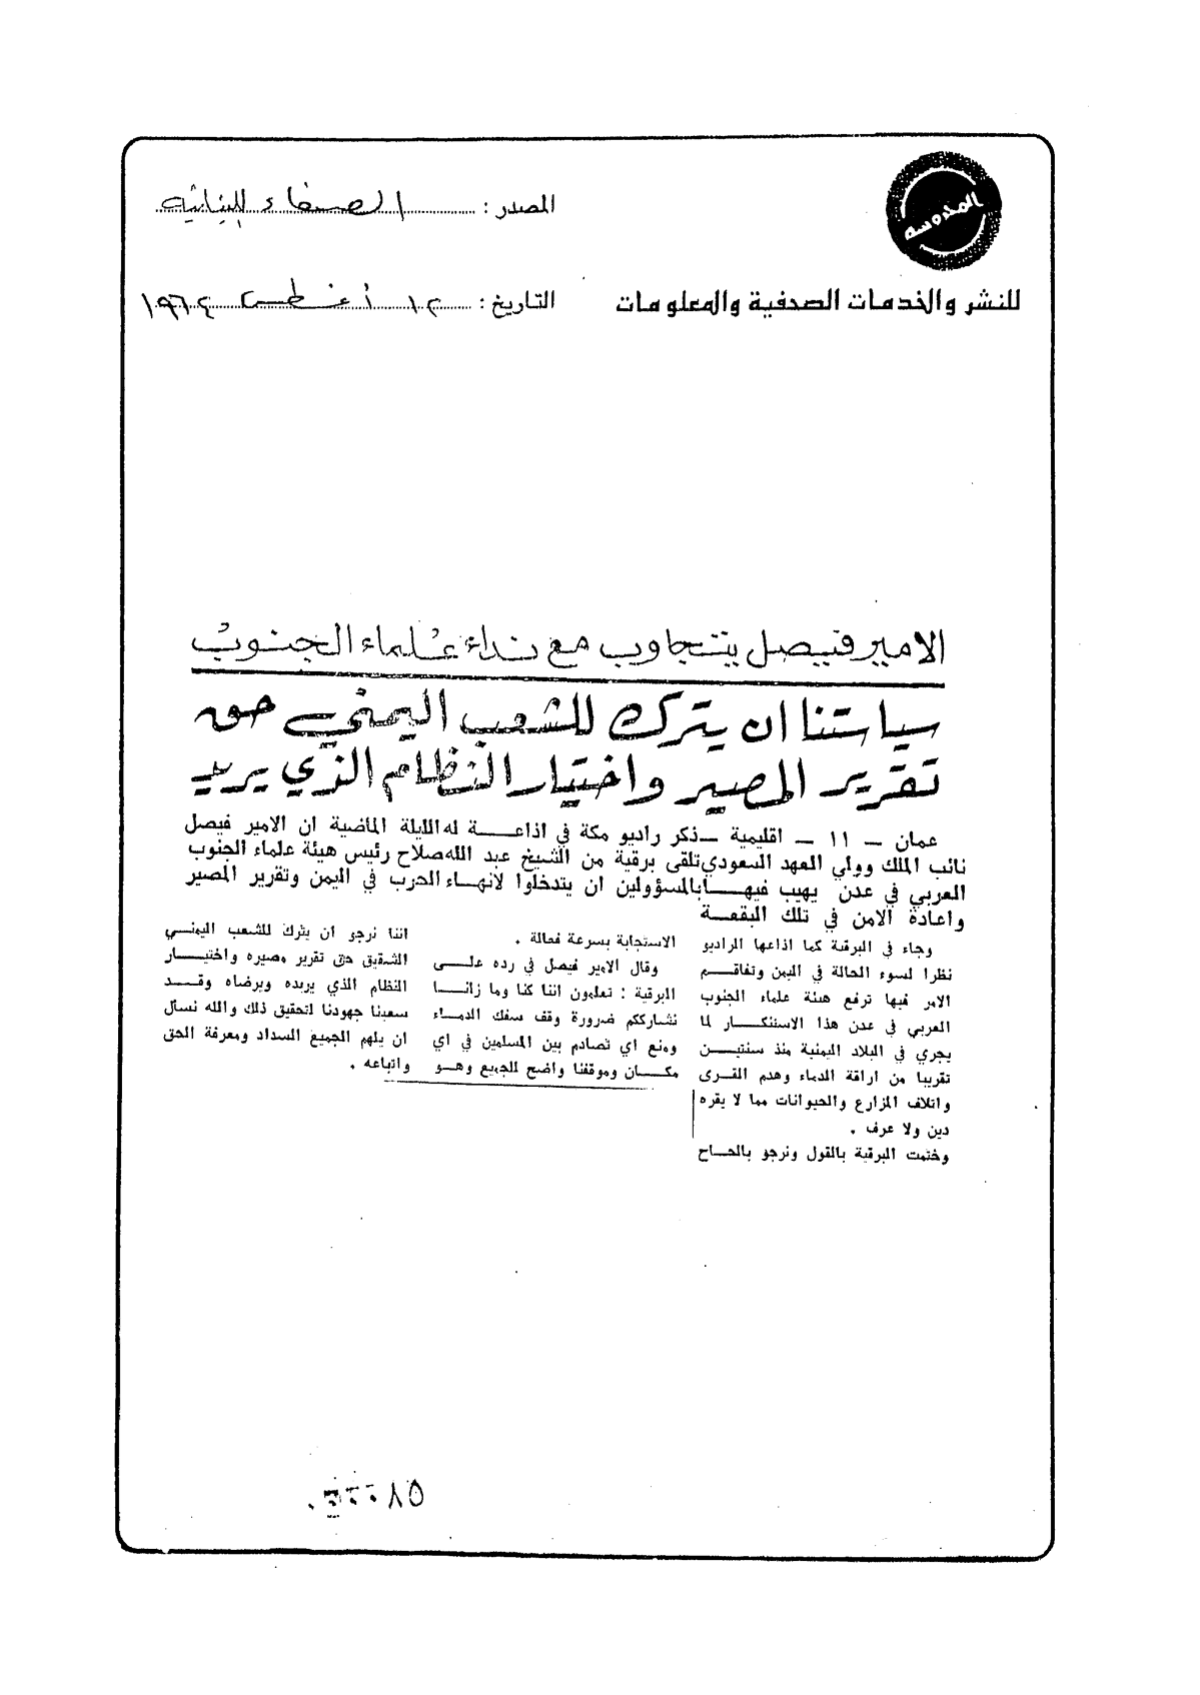 المحروسة
للنشر والخدمات الصحفية والمعلومات
المصدر : الصفاء اللبنانية
التاريخ : ١٢ أغسطس ١٩٦٤
الامير فيصل يتجاوب مع نداء علماء الجنوب
سياستنا ان يترك للشعب اليمني حق
تقرير المصير واختيار النظام الذي يريد
عمان ــ ١١ ــ اقليمية ــ ذكر راديو مكة في اذاعة له الليلة الماضية ان الامير فيصل
نائب الملك وولي العهد السعودي تلقى برقية من الشيخ عبد الله صلاح رئيس هيئة علماء الجنوب
العربي في عدن يهيب فيها بالمسؤولين ان يتدخلوا لانهاء الحرب في اليمن وتقرير المصير
واعادة الامن في تلك البقعة
وجاء في البرقية كما اذاعها الراديو
نظرا لسوء الحالة في اليمن وتفاقم
الامر فيها ترفع هيئة علماء الجنوب
العربي في عدن هذا الاستنكار لما
يجري في البلاد اليمنية منذ سنتين
تقريبا من اراقة الدماء وهدم القرى
واتلاف المزارع والحيوانات مما لا يقره
دين ولا عرف .
وختمت البرقية بالقول ونرجو بالحاح
الاستجابة بسرعة فعالة .
وقال الامير فيصل في رده على
البرقية : تعلمون اننا كنا وما زلنا
نشارككم ضرورة وقف سفك الدماء
ومنع اي تصادم بين المسلمين في اي
مكان وموقفنا واضح للجميع وهو
اننا نرجو ان يترك للشعب اليمني
الشقيق حق تقرير مصيره واختيار
النظام الذي يريده ويرضاه وقد
سعينا جهودنا لتحقيق ذلك والله نسأل
ان يلهم الجميع السداد ومعرفة الحق
واتباعه .